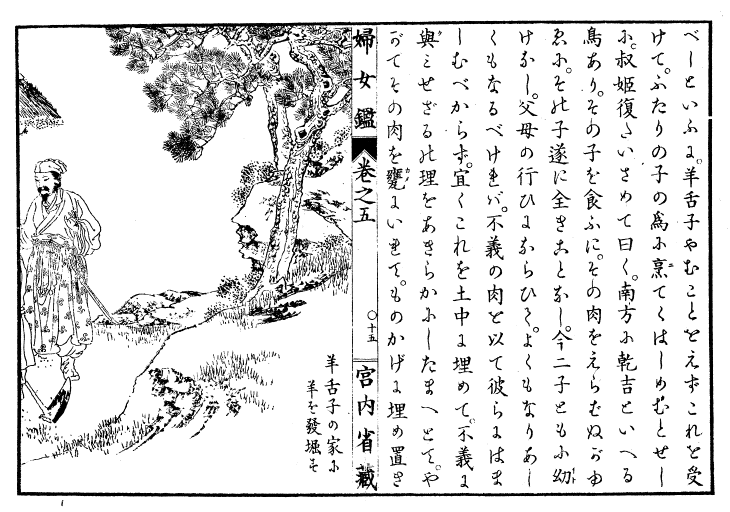 べしといふに。羊舌子やむことをえずこれを受
けて。ふたりの子の爲に烹てくはしめむとせし
に。叔姬復たいさめて曰く。南方に乾吉といへる
鳥あり。その子を食ふに。その肉をえらむぬがゆ
ゑに。その子遂に全きことなし。今二子ともに幼
けなし。父母の行ひにならひて。よくもなりあし
くもなるべければ。不義の肉を以て彼らにはま
しむべからず。宜くこれを土中に埋めて。不義に
與みせざるの理をあきらかにしたまへとて。や
がてその肉を甕にいれて。ものかげに埋め置き
婦女鑑 卷之五 〇十五 宮内省藏
羊舌子の家に
羊を發堀す